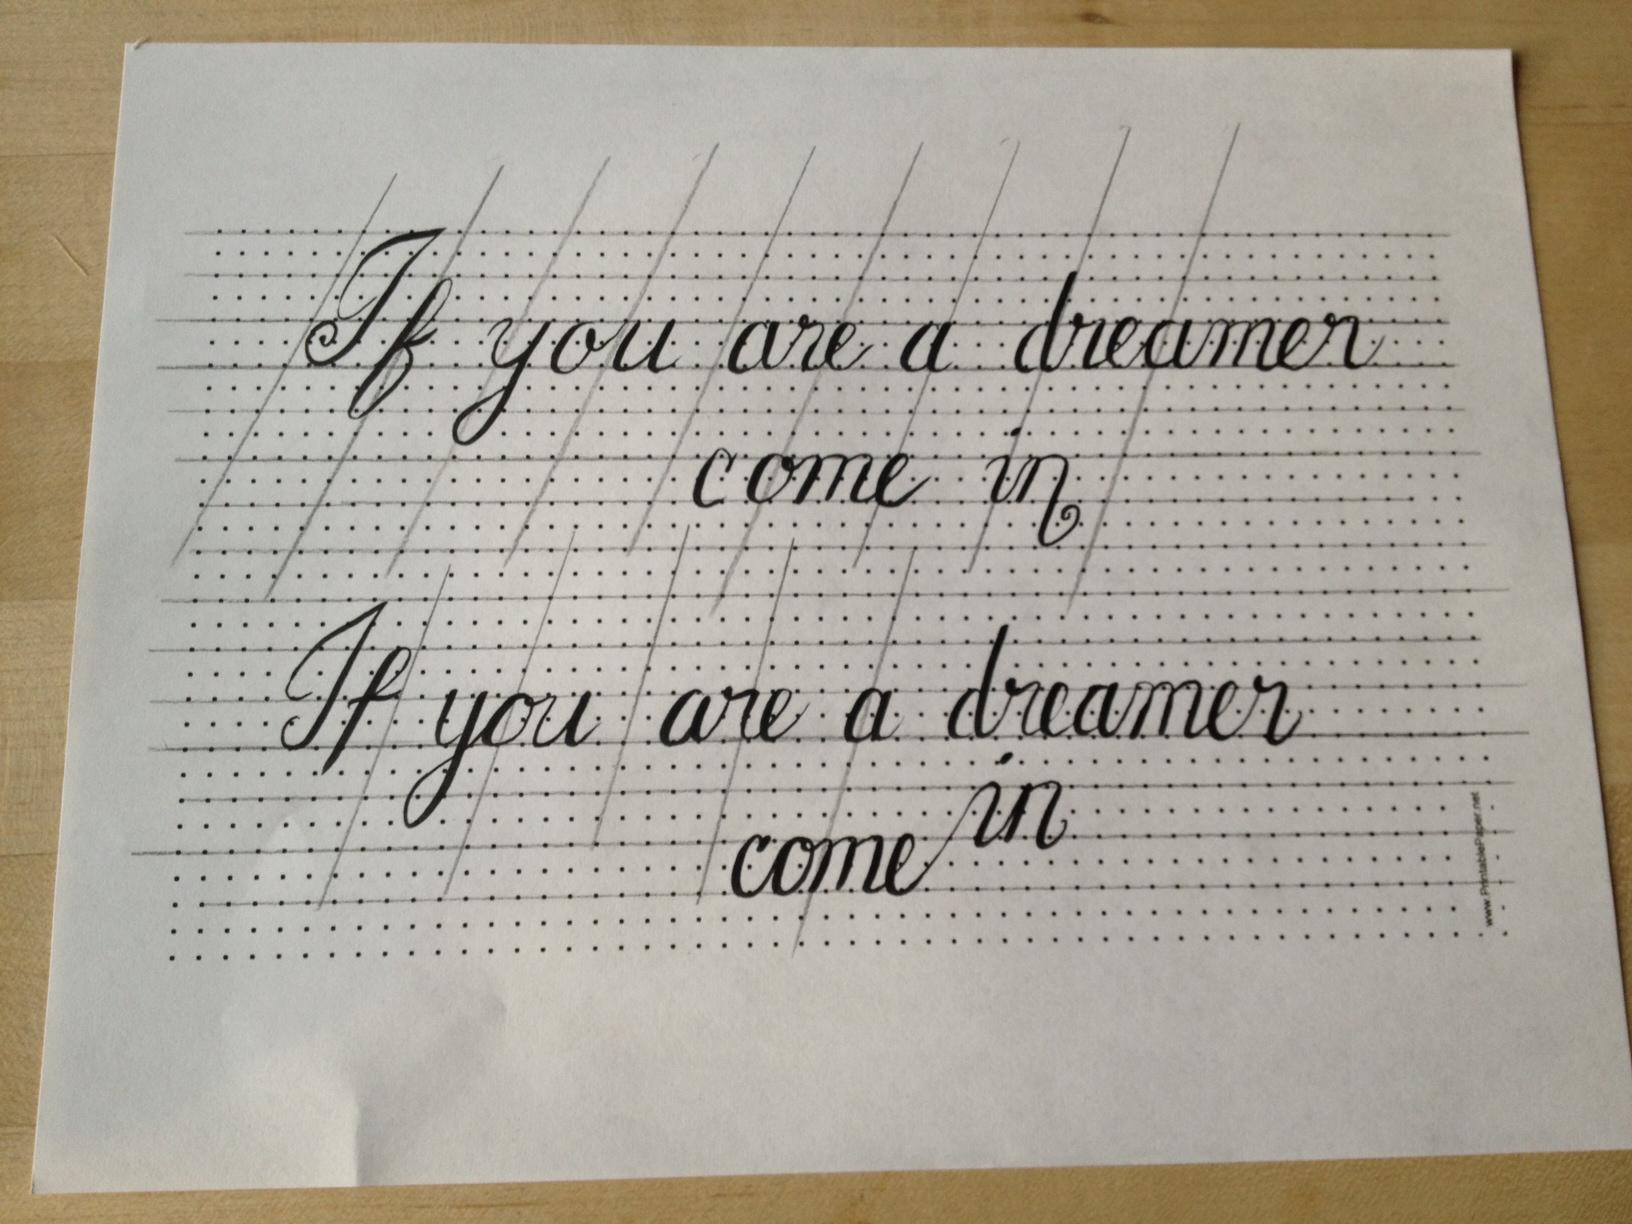 If you are a dreamer
come in
If you are a dreamer
come in
www.PrintablePaper.net